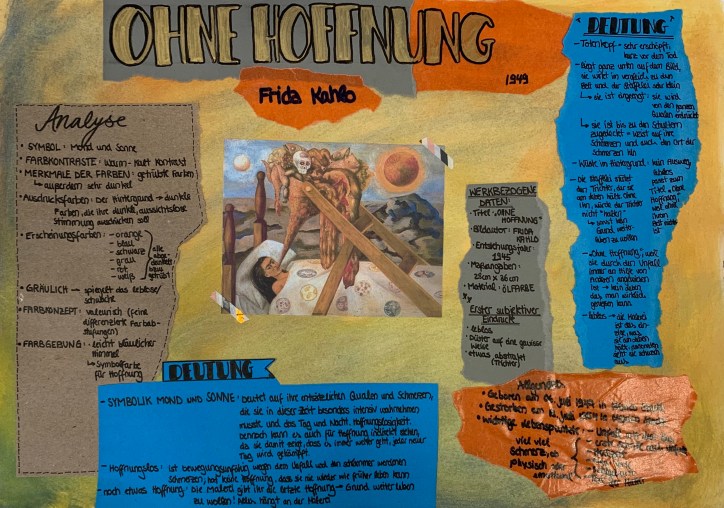 OHNE HOFFNUNG
Frida Kahlo
1949
Analyse
• SYMBOL: Mond und Sonne
• FARBKONTRASTE: Warm-Kalt Kontrast
• MERKMALE DER FARBEN: getrübte Farben
↳ außerdem sehr dunkel
• Ausdrucksfarben: Der Hintergrund → dunkle
Farben, die ihre dunkle, aussichtslose
Stimmung ausdrücken soll
• Erscheinungsfarben: - orange
- blau
- schwarz
- grau
- rot
- weiß
alle
aber
dunkel
bzw.
getrübt
• GRÄULICH → spiegelt das leblose/
schwache
• FARBKONZEPT: valeurich (feine
differenzierte Farbab-
stufungen)
• FARBGEBUNG: leicht bläulicher
Himmel
↳ Symbolfarbe
für Hoffnung
WERKBEZOGENE
DATEN:
• Titel: "OHNE
HOFFNUNG"
• Bildautor: FRIDA
KAHLO
• Entstehungsjahr:
1945
• Maßangaben:
28cm x 36cm
• Material: ÖLFARBE
Erster subjektiver
Eindruck
• leblos
• Düster auf eine gewisse
Weise
• etwas abstrakt
(Trichter)
DEUTUNG
- Totenkopf - sehr erschöpft,
kurz vor dem Tod
- liegt ganz unten auf dem Bild,
sie wirkt im vergleich zu dem
Bett und der Staffelei sehr klein
↳ sie ist eingeengt: sie wird
von den ganzen
Qualen erdrückt
↳ sie ist bis zu den Schultern
zugedeckt - weist auf ihre
Schmerzen und auch den Ort der
Schmerzen hin
- Wüste im Hintergrund: kein Ausweg,
lebloses
passt zum
Titel "Ohne
Hoffnung",
weil
- Die Staffelei stützt
den Trichter, der sie
am leben hält. Ohne
ihn, würde der Trichter
nicht "halten"
↳ sonst kein
Grund weiter
leben zu wollen
- "Ohne Hoffnung", weil
sie durch den Unfall
immer an Hilfe von
Anderen angewiesen
ist → kein Leben
das man wirklich
genießen kann
→ die Malerei
ist das ein-
zige, was
sie am Leben
DEUTUNG
- SYMBOLIK MOND UND SONNE: deutet auf ihre entsetzlichen Qualen und Schmerzen,
die sie in dieser Zeit besonders intensiv wahrnehmen
musste und das Tag und Nacht. Hoffnungslosigkeit.
Dennoch kann es auch für Hoffnung stehen,
da sie damit zeigt, dass es immer weiter geht, jeder neue
Tag wird gekämpft.
- Hoffnungslos: ist bewegungsunfähig wegen dem Unfall und den schlimmer werdenen
Schmerzen, hat keine Hoffnung, dass sie nie wieder wie früher leben kann
- noch etwas Hoffnung: Die Malerei gibt ihr die letzte Hoffnung → Grund weiter leben
zu wollen! Alles hängt an der Malerei
• Geboren am 06. Juli
• Gestorben am 13. Juli 1954
• wichtige Lebenspunkte: - Unfall
viel viel
Schmerz, ob
physisch oder